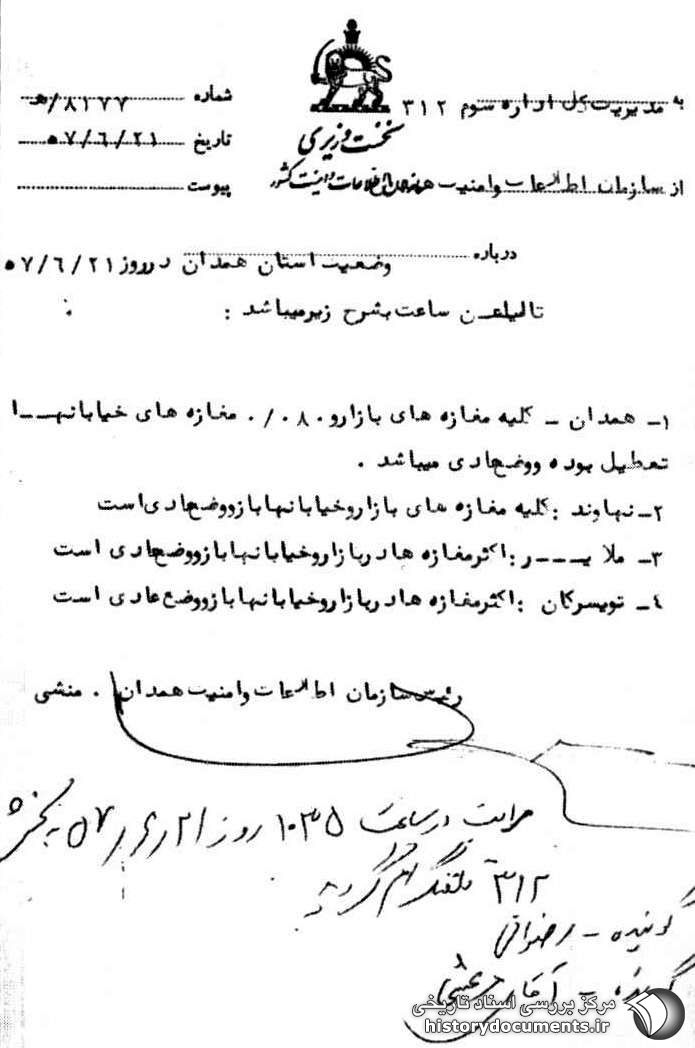 به مدیریت کل اداره سوم ۳۱۲
شماره ۸۱۷۷/هـ
نخست وزیری
تاریخ ۵۷/۶/۲۱
از سازمان اطلاعات وامنیت همدان
سازمان اطلاعات و امنیت کشور
پیوست
درباره وضعیت استان همدان درروز ۵۷/۶/۲۱
تا این ساعت بشرح زیرمیباشد :
۱ـ همدان ـ کلیه مغازه های بازارو ۸۰٪ مغازه های خیابانهـــا
تعطیل بوده ووضع عادی میباشد .
۲ـ نهاوند : کلیه مغازه های بازاروخیابانها بازووضع عادی است
۳ـ ملایـــر : اکثرمغازه ها دربازاروخیابانها بازووضع عادی است
۴ـ تویسرکان : اکثرمغازه ها دربازاروخیابانها بازووضع عادی است
رئیس سازمان اطلاعات وامنیت همدان . منشی
مراتب در ساعت ۱۰۳۵ روز ۲۱/۶/۵۷ به بخش
۳۱۲ تلفنگرام گردید
گوینده ـ رضوانی
گیرنده ـ آقای
مرکز بررسی اسناد تاریخی
historydocuments.ir